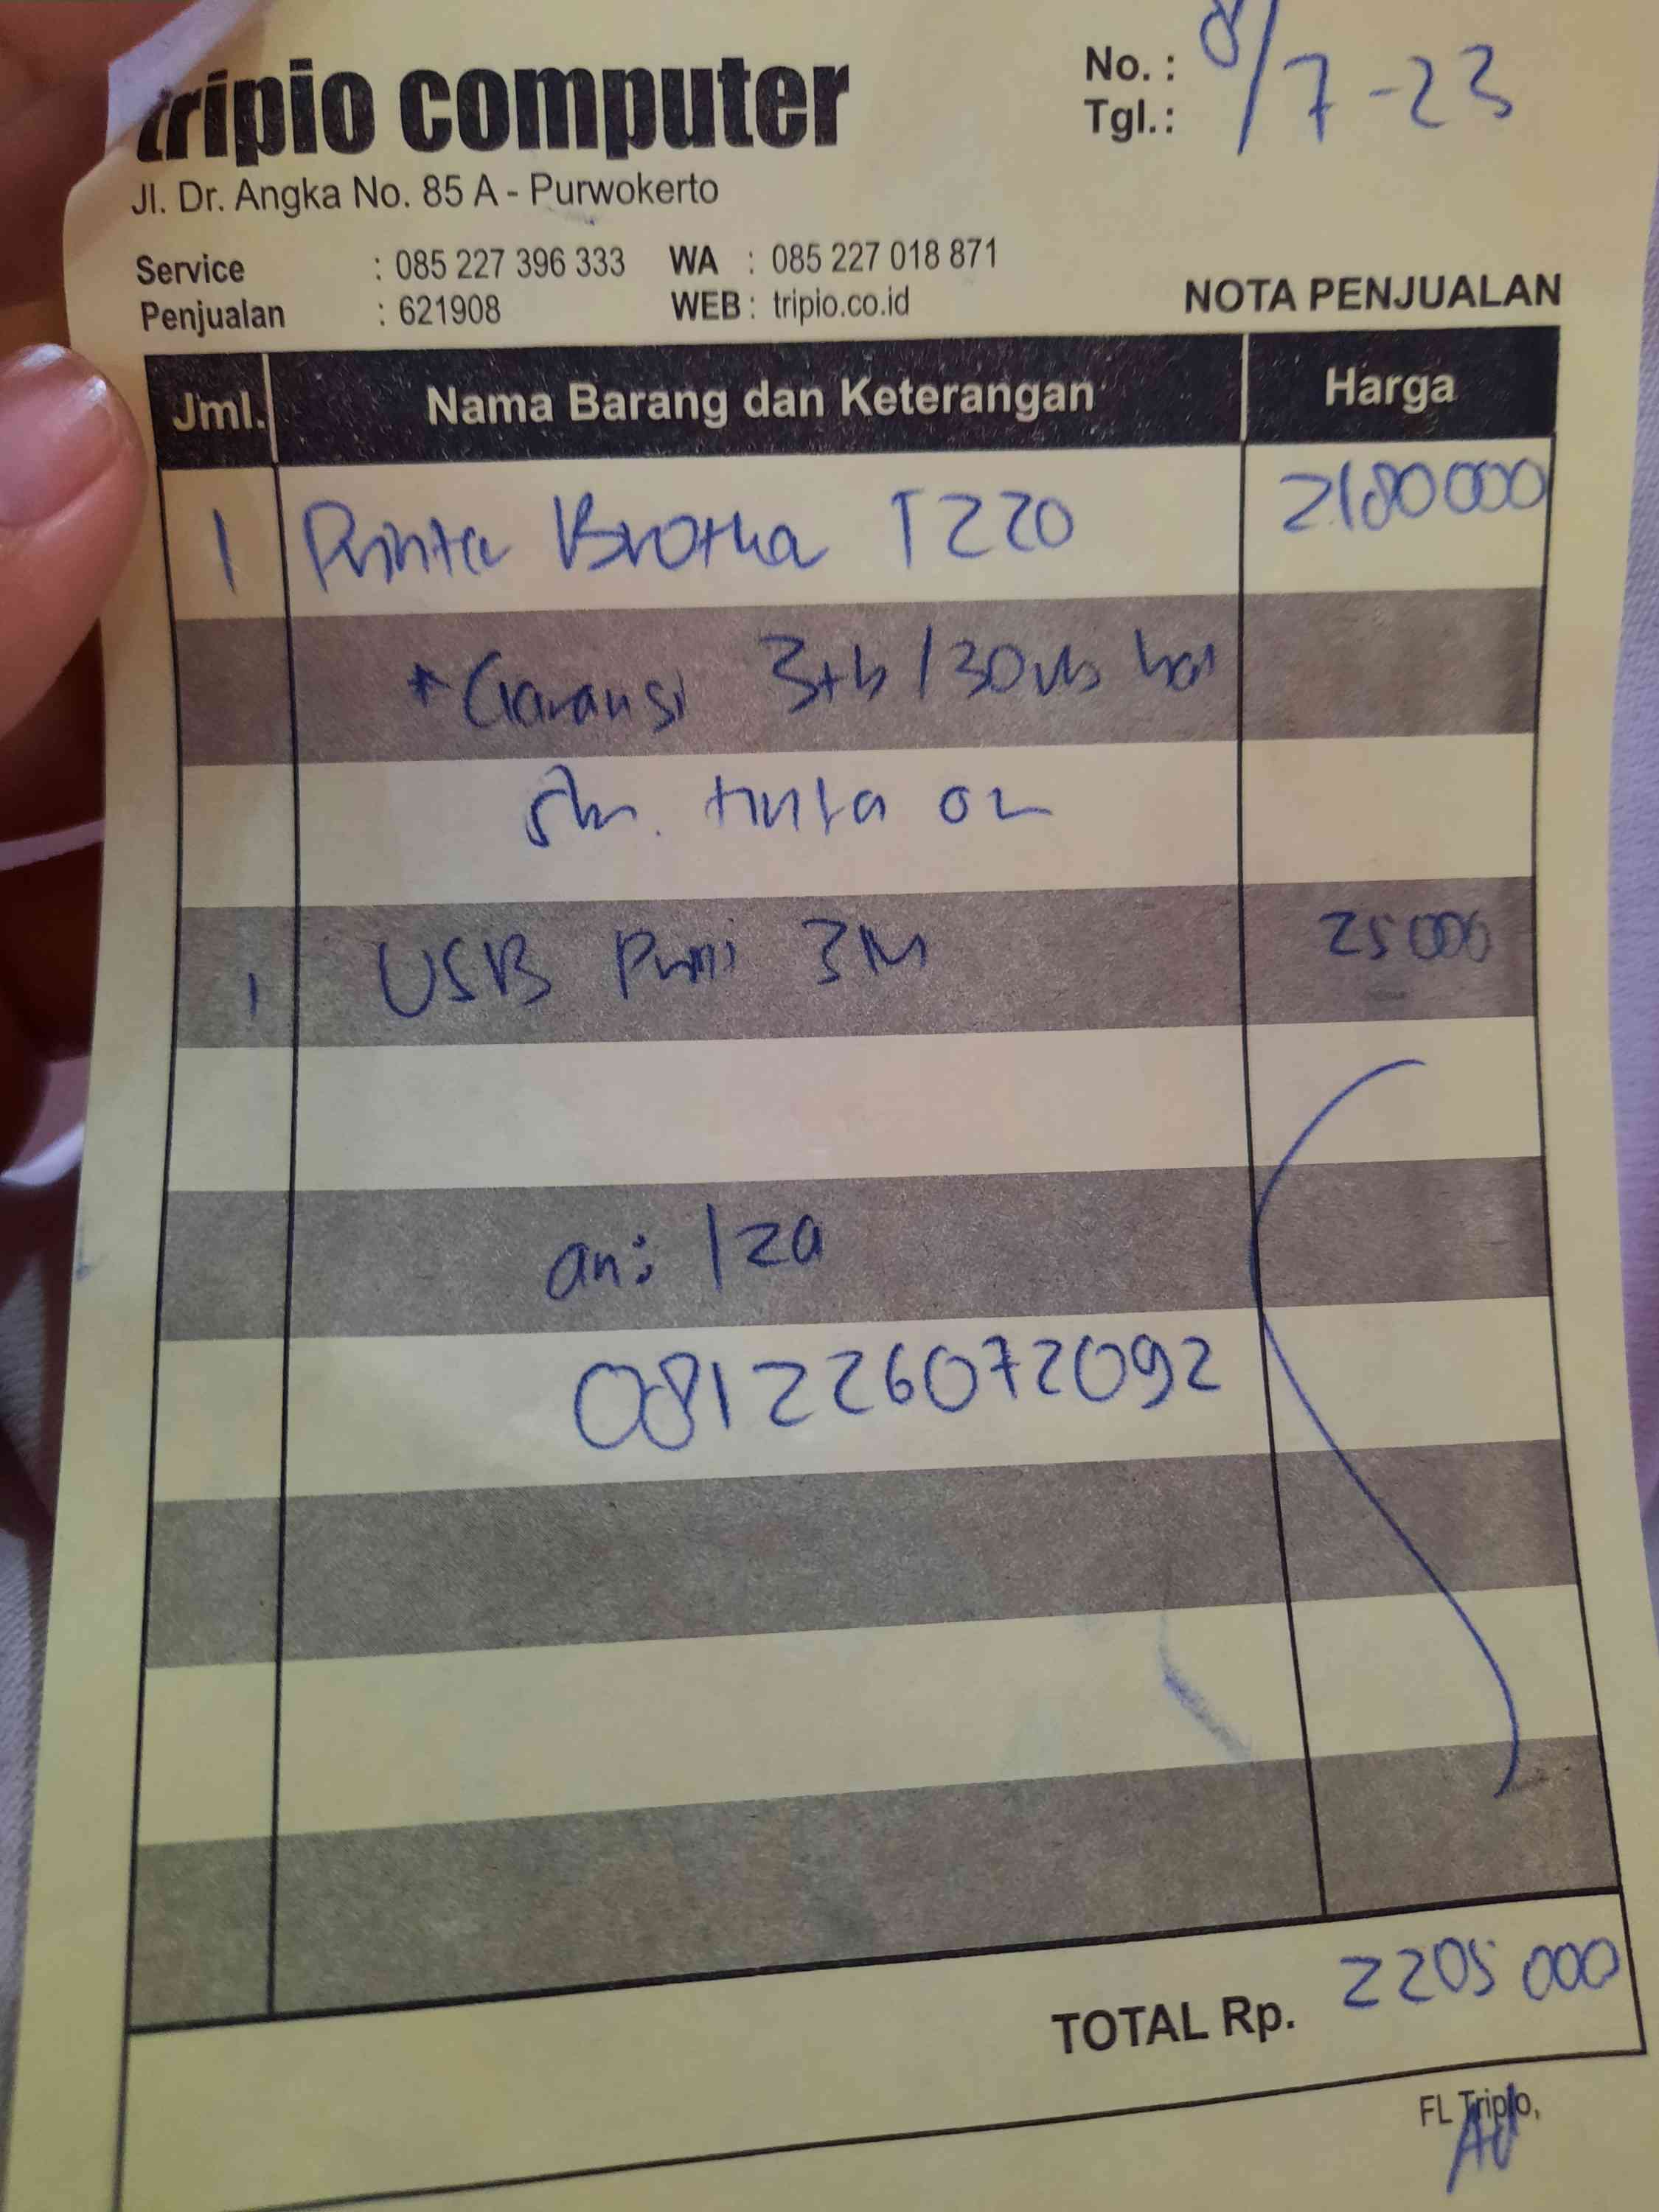 tripio computer
Jl. Dr. Angka No. 85 A - Purwokerto
No. :
Tgl. : 8/7-23
Service : 085 227 396 333 WA : 085 227 018 871
Penjualan : 621908 WEB : tripio.co.id
NOTA PENJUALAN
Jml. Nama Barang dan Keterangan Harga
1 Printer Brother T220 2180000
*Garansi 3th/30rb
tinta
1 USB 3M 25000
an: Iza
081226072092
TOTAL Rp. 2205000
FL Tripio,